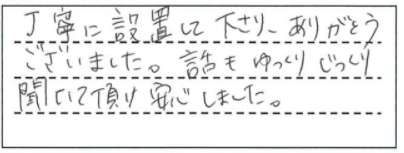 丁寧に設置して下さり、ありがとう
ございました。話もゆっくりじっくり
聞いて頂け安心しました。